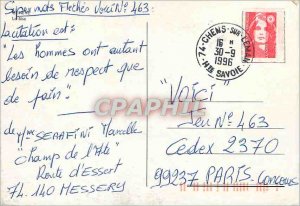 Super mots Flechés Voici N° 463:
Citation est:
"Les hommes ont autant
besoin de respect que
de pain."
de Mme SERAFINI Marcelle
"Champ de l'Ate"
Route d'Essert
74.140 MESSERY
74-CHENS-SUR-LEMAN
16 H
30-9
1996
HTE SAVOIE
"VOICI"
Jeu N° 463
Cedex 2370
99237 PARIS Concours
CPARAMA